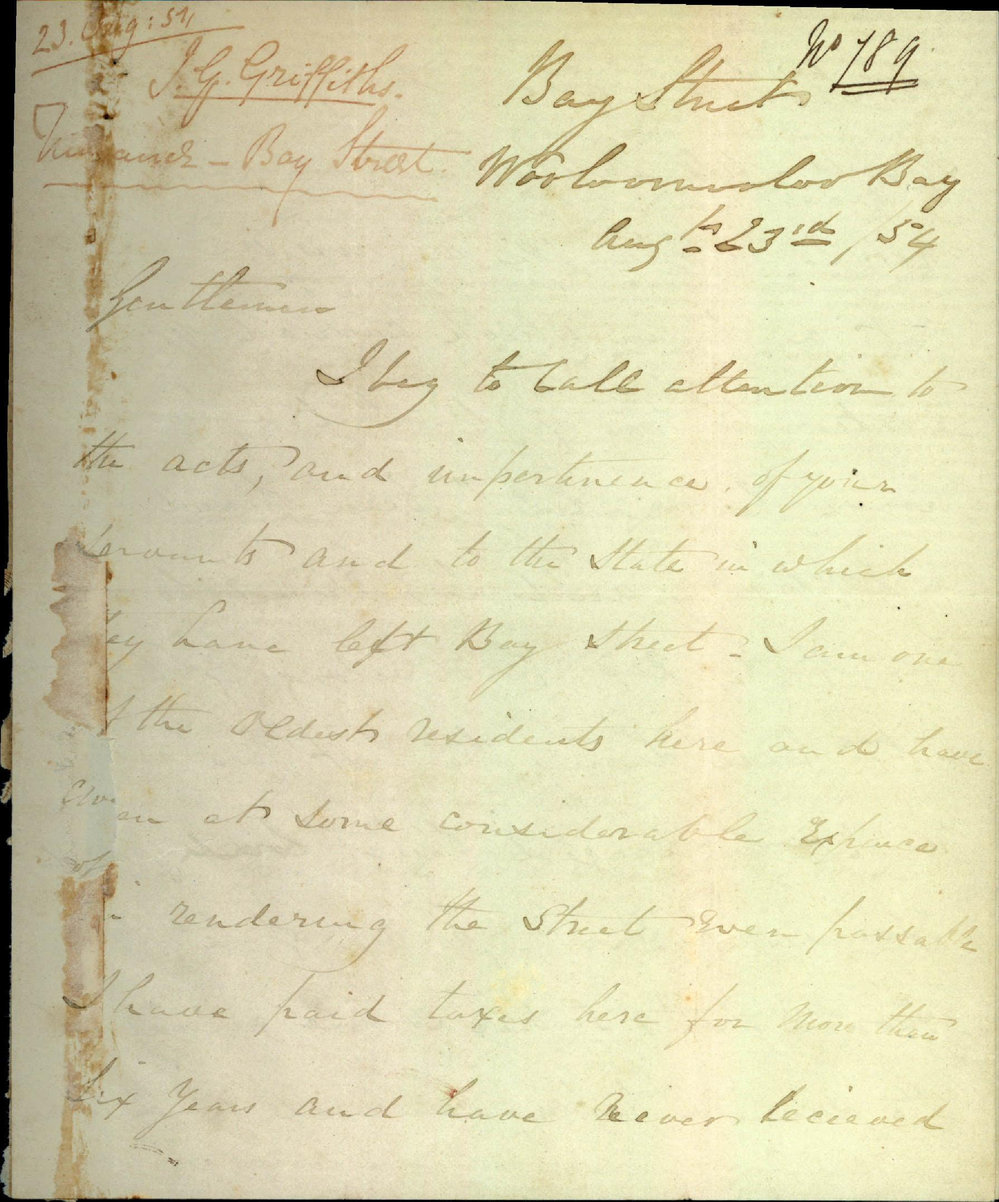 23. Aug: 54,
J. G. Griffiths.
Nuisance - Bay Street.
No 789
Bay Street
Wooloomooloo Bay
Augth 23rd /54
Gentlemen
I beg to call attention to
the acts, and impertinence of your
servants and to the state in which
they have left Bay Street - I am one
of the oldest residents here and have
been at some considerable expence
in rendering the street even passable
I have paid taxes here for more then
six years and have never recieved